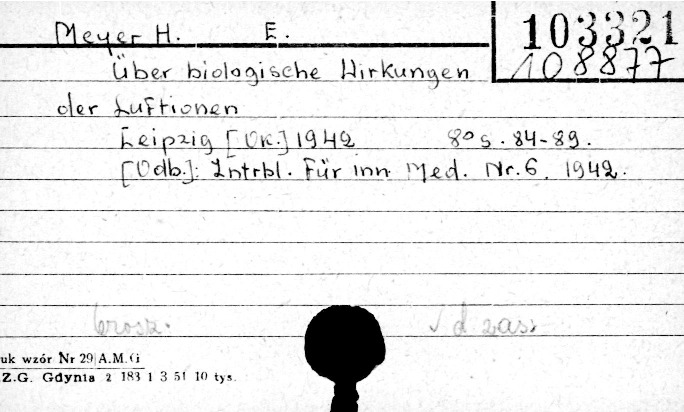 103321
108877
Meyer H. E.
Über biologische Wirkungen
der Luftionen
Leipzig [Dr.] 1942 8° s. 84-89.
[Odb.]: Zntrbl. Für inn. Med. Nr. 6, 1942.
brosz. d zas.
uk wzór Nr 29 A.M.G
Z.G. Gdynia 2 183 1 3 51 10 tys.